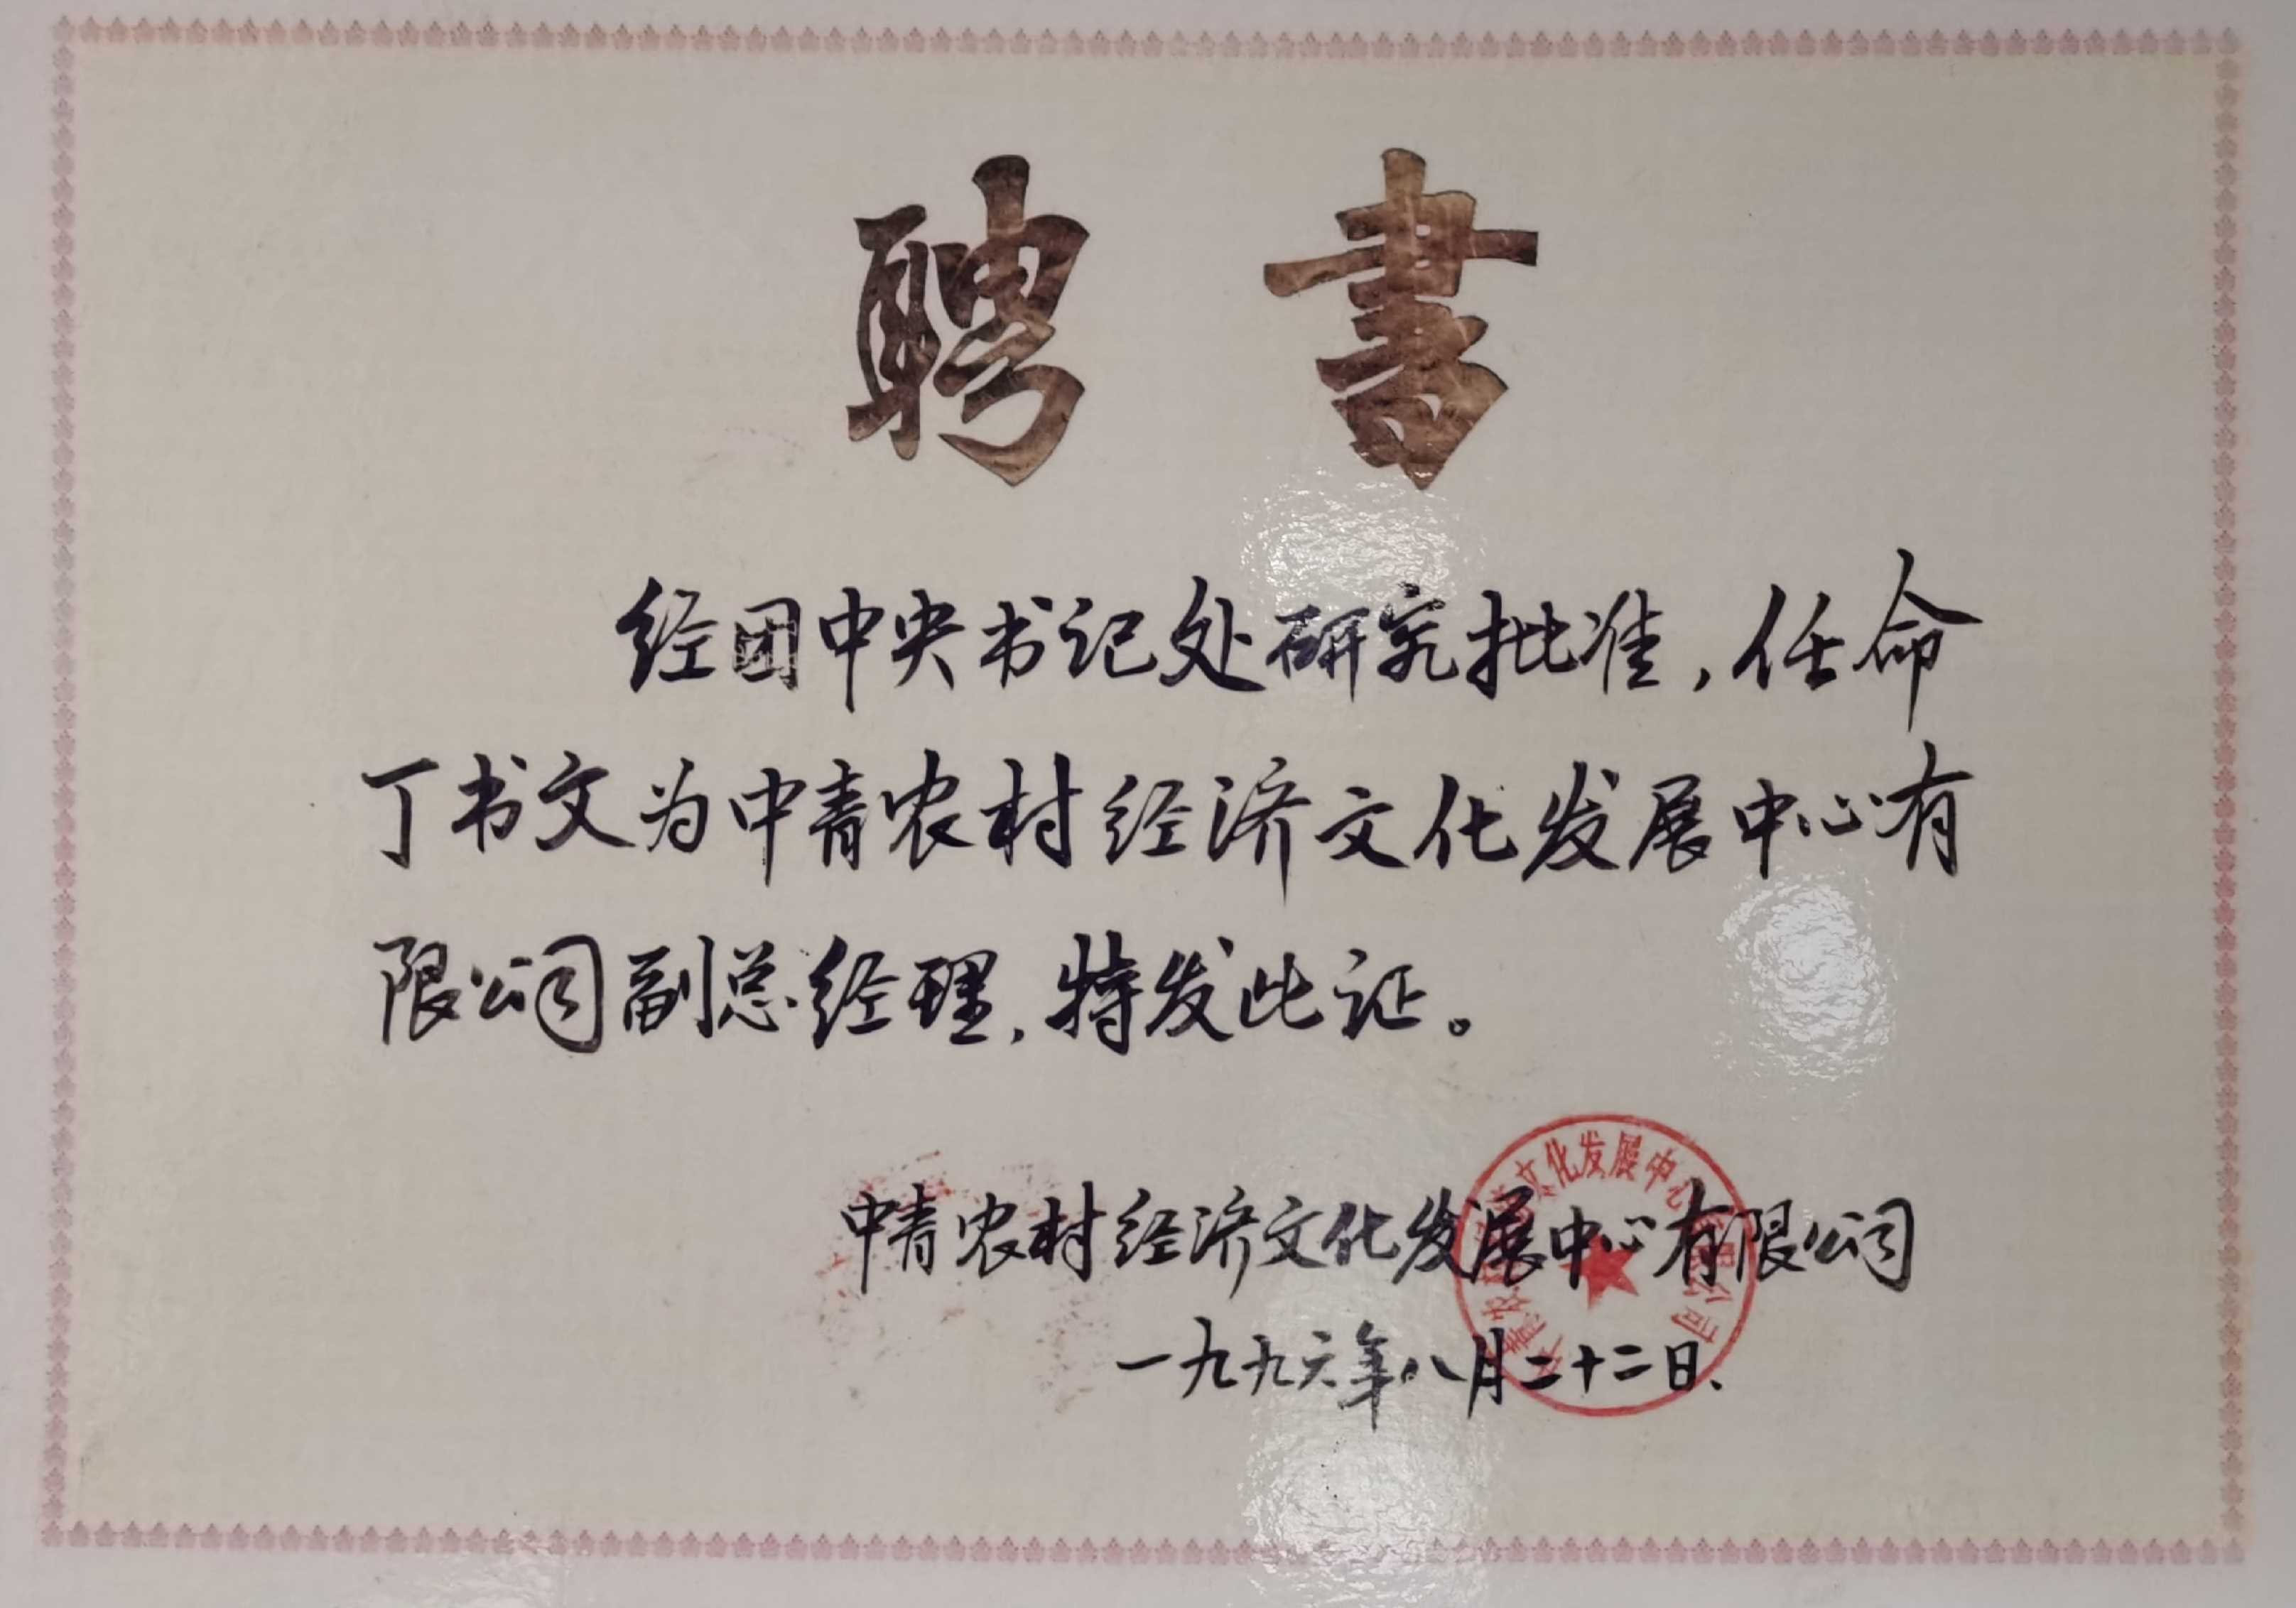 聘書
经团中央书记处研究批准，任命
丁书文为中青农村经济文化发展中心有
限公司副总经理，特发此证。
中青农村经济文化发展中心有限公司
一九九六年八月二十二日
文化发展中心
公司